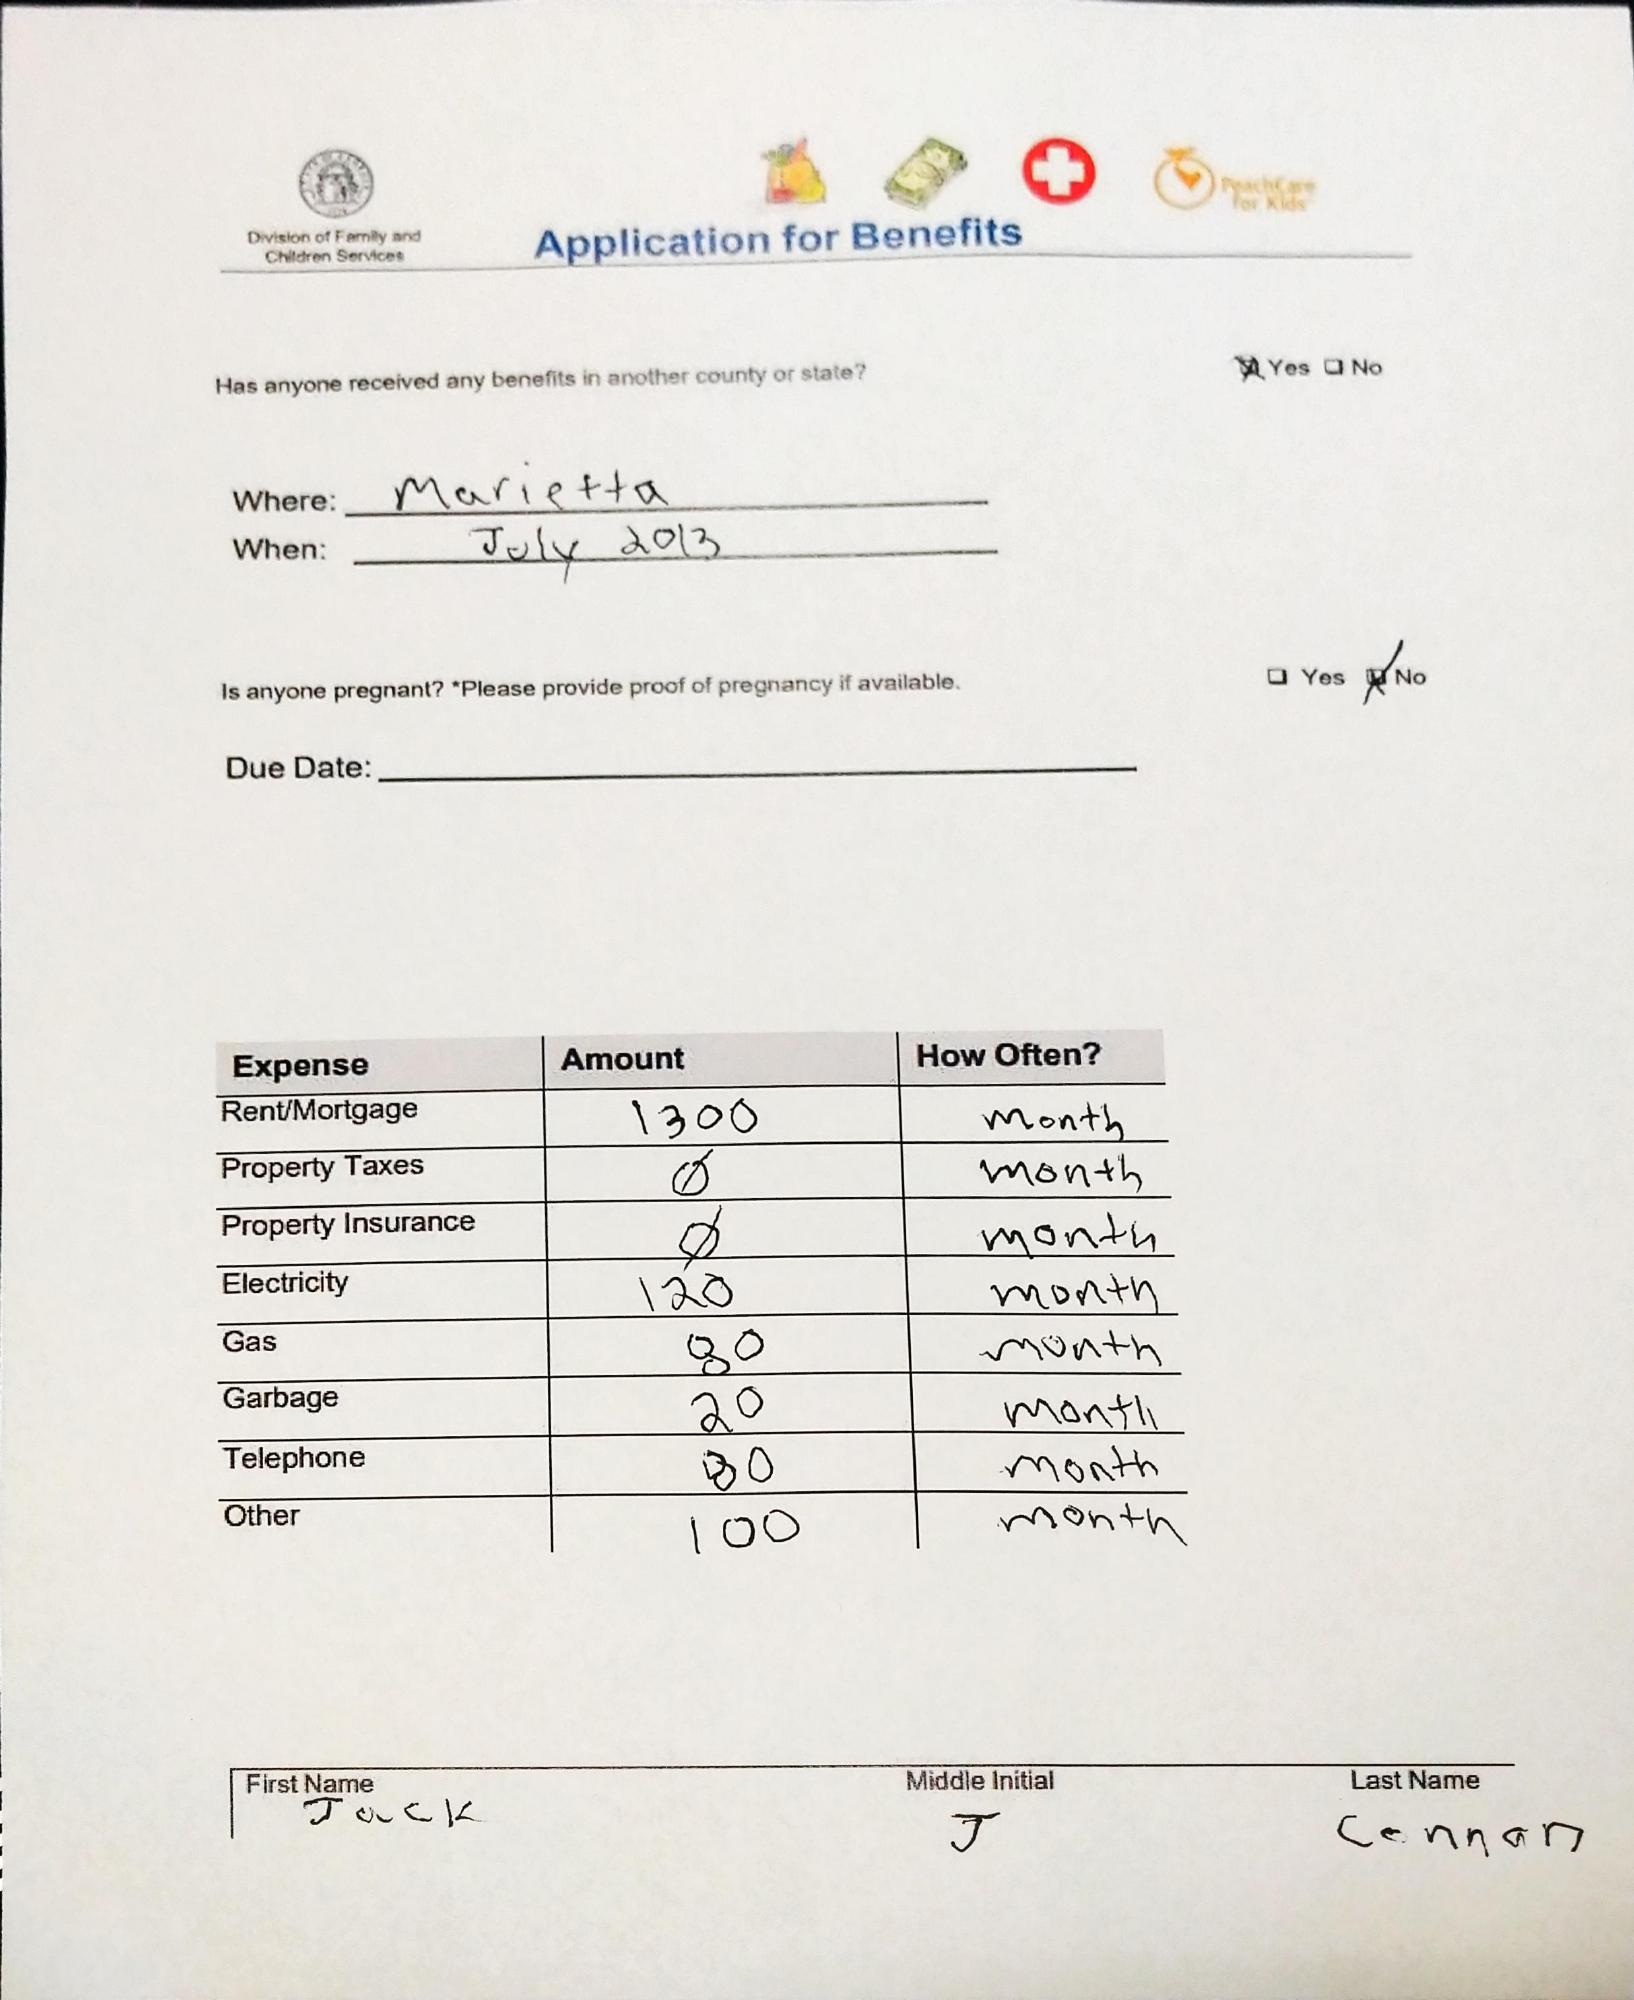 PeachCare
for Kids
Division of Family and
Children Services
Application for Benefits
Has anyone received any benefits in another county or state? Yes No
Where: Marietta
When: July 2013
Is anyone pregnant? *Please provide proof of pregnancy if available. Yes No
Due Date:
Expense Amount How Often?
Rent/Mortgage 1300 month
Property Taxes Ø month
Property Insurance Ø month
Electricity 120 month
Gas 80 month
Garbage 20 month
Telephone 80 month
Other 100 month
First Name Middle Initial Last Name
Jack J Connan